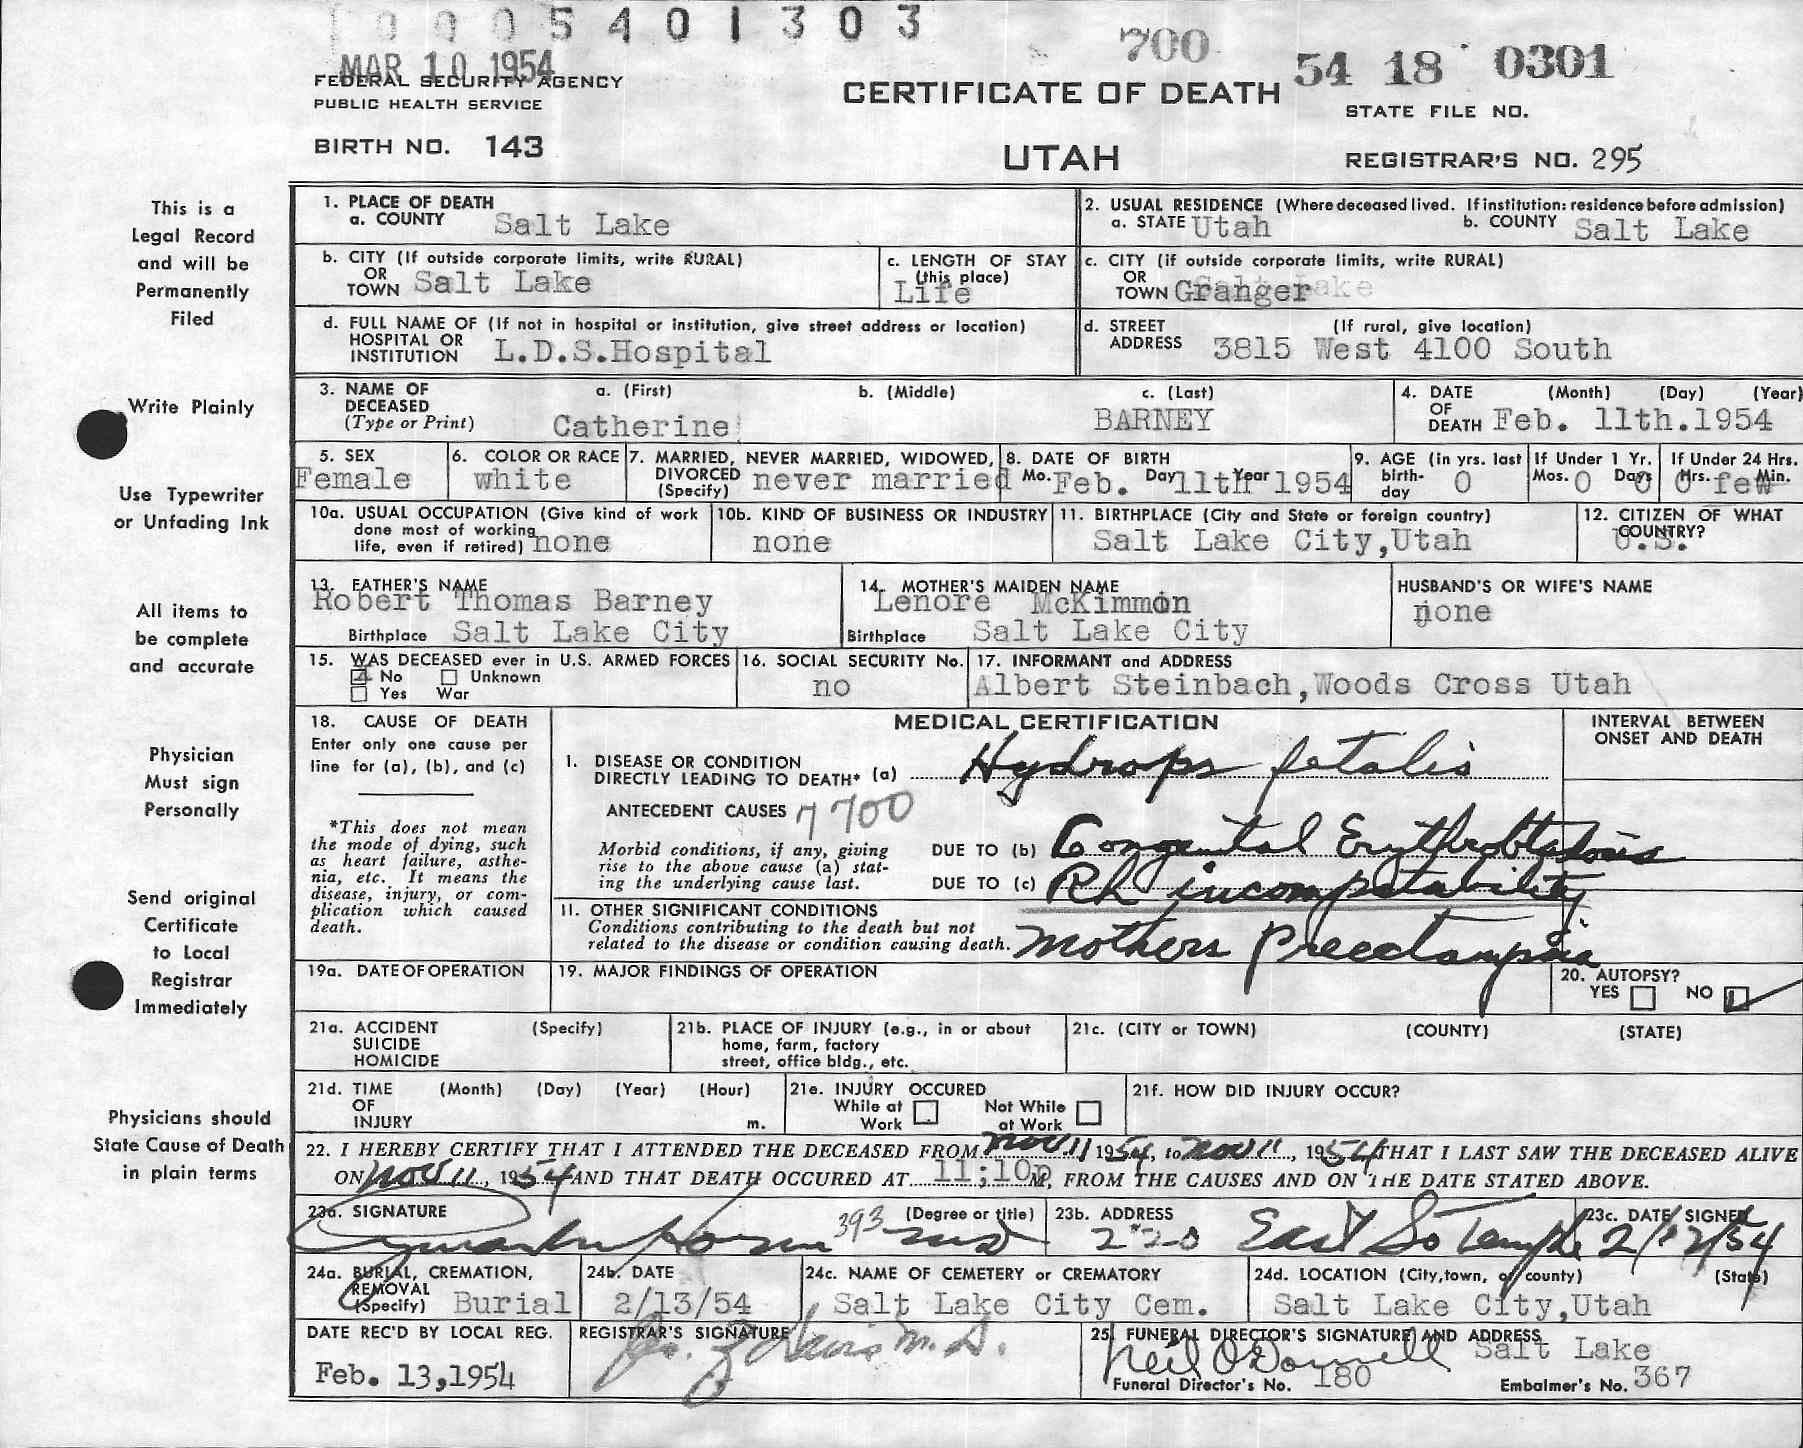 0005401303
MAR 10 1954
700
54 18 0301
FEDERAL SECURITY AGENCY
PUBLIC HEALTH SERVICE
CERTIFICATE OF DEATH
STATE FILE NO.
BIRTH NO. 143
UTAH
REGISTRAR'S NO. 295
This is a
Legal Record
and will be
Permanently
Filed
Write Plainly
Use Typewriter
or Unfading Ink
All items to
be complete
and accurate
Physician
Must sign
Personally
Send original
Certificate
to Local
Registrar
Immediately
Physicians should
State Cause of Death
in plain terms
1. PLACE OF DEATH
a. COUNTY Salt Lake
2. USUAL RESIDENCE (Where deceased lived. If institution: residence before admission)
a. STATE Utah b. COUNTY Salt Lake
b. CITY (If outside corporate limits, write RURAL)
OR
TOWN Salt Lake
c. LENGTH OF STAY
(this place)
Life
c. CITY (if outside corporate limits, write RURAL)
OR
TOWN Granger
d. FULL NAME OF (If not in hospital or institution, give street address or location)
HOSPITAL OR
INSTITUTION L.D.S.Hospital
d. STREET (If rural, give location)
ADDRESS 3815 West 4100 South
3. NAME OF a. (First) b. (Middle) c. (Last)
DECEASED
(Type or Print) Catherine BARNEY
4. DATE (Month) (Day) (Year)
OF
DEATH Feb. 11th.1954
5. SEX
Female
6. COLOR OR RACE
white
7. MARRIED, NEVER MARRIED, WIDOWED,
DIVORCED
(Specify) never married
8. DATE OF BIRTH
Mo. Feb. Day 11th Year 1954
9. AGE (in yrs. last
birth-
day 0
If Under 1 Yr.
Mos. 0 Days 0
If Under 24 Hrs.
Hrs. 0 few Min.
10a. USUAL OCCUPATION (Give kind of work
done most of working
life, even if retired) none
10b. KIND OF BUSINESS OR INDUSTRY
none
11. BIRTHPLACE (City and State or foreign country)
Salt Lake City,Utah
12. CITIZEN OF WHAT
COUNTRY?
U.S.
13. FATHER'S NAME
Robert Thomas Barney
Birthplace Salt Lake City
14. MOTHER'S MAIDEN NAME
Lenore McKimmon
Birthplace Salt Lake City
HUSBAND'S OR WIFE'S NAME
none
15. WAS DECEASED ever in U.S. ARMED FORCES
No Unknown
Yes War
16. SOCIAL SECURITY No.
no
17. INFORMANT and ADDRESS
Albert Steinbach,Woods Cross Utah
18. CAUSE OF DEATH
Enter only one cause per
line for (a), (b), and (c)
*This does not mean
the mode of dying, such
as heart failure, asthe-
nia, etc. It means the
disease, injury, or com-
plication which caused
death.
MEDICAL CERTIFICATION
INTERVAL BETWEEN
ONSET AND DEATH
I. DISEASE OR CONDITION
DIRECTLY LEADING TO DEATH* (a) Hydrops fetalis
ANTECEDENT CAUSES 7700
Morbid conditions, if any, giving
rise to the above cause (a) stat-
ing the underlying cause last.
DUE TO (b) Congenital Erythroblastosis
DUE TO (c) Rh incompatability
II. OTHER SIGNIFICANT CONDITIONS
Conditions contributing to the death but not
related to the disease or condition causing death. Mothers Preeclampsia
19a. DATE OF OPERATION
19. MAJOR FINDINGS OF OPERATION
20. AUTOPSY?
YES NO
21a. ACCIDENT (Specify)
SUICIDE
HOMICIDE
21b. PLACE OF INJURY (e.g., in or about
home, farm, factory
street, office bldg., etc.
21c. (CITY or TOWN) (COUNTY) (STATE)
21d. TIME (Month) (Day) (Year) (Hour)
OF
INJURY m.
21e. INJURY OCCURED
While at Work
Not While at Work
21f. HOW DID INJURY OCCUR?
22. I HEREBY CERTIFY THAT I ATTENDED THE DECEASED FROM Nov 11 1954, to Nov 11, 1954 THAT I LAST SAW THE DECEASED ALIVE
ON Nov 11, 1954 AND THAT DEATH OCCURED AT 11;10p M, FROM THE CAUSES AND ON THE DATE STATED ABOVE.
23a. SIGNATURE (Degree or title)
393 MD
23b. ADDRESS
220 East So Temple
23c. DATE SIGNED
2/12/54
24a. BURIAL, CREMATION,
REMOVAL
(Specify) Burial
24b. DATE
2/13/54
24c. NAME OF CEMETERY or CREMATORY
Salt Lake City Cem.
24d. LOCATION (City,town, or county) (State)
Salt Lake City,Utah
DATE REC'D BY LOCAL REG.
Feb. 13,1954
REGISTRAR'S SIGNATURE
M.D.
25. FUNERAL DIRECTOR'S SIGNATURE AND ADDRESS
Neil O'Donnell Salt Lake
Funeral Director's No. 180 Embalmer's No. 367